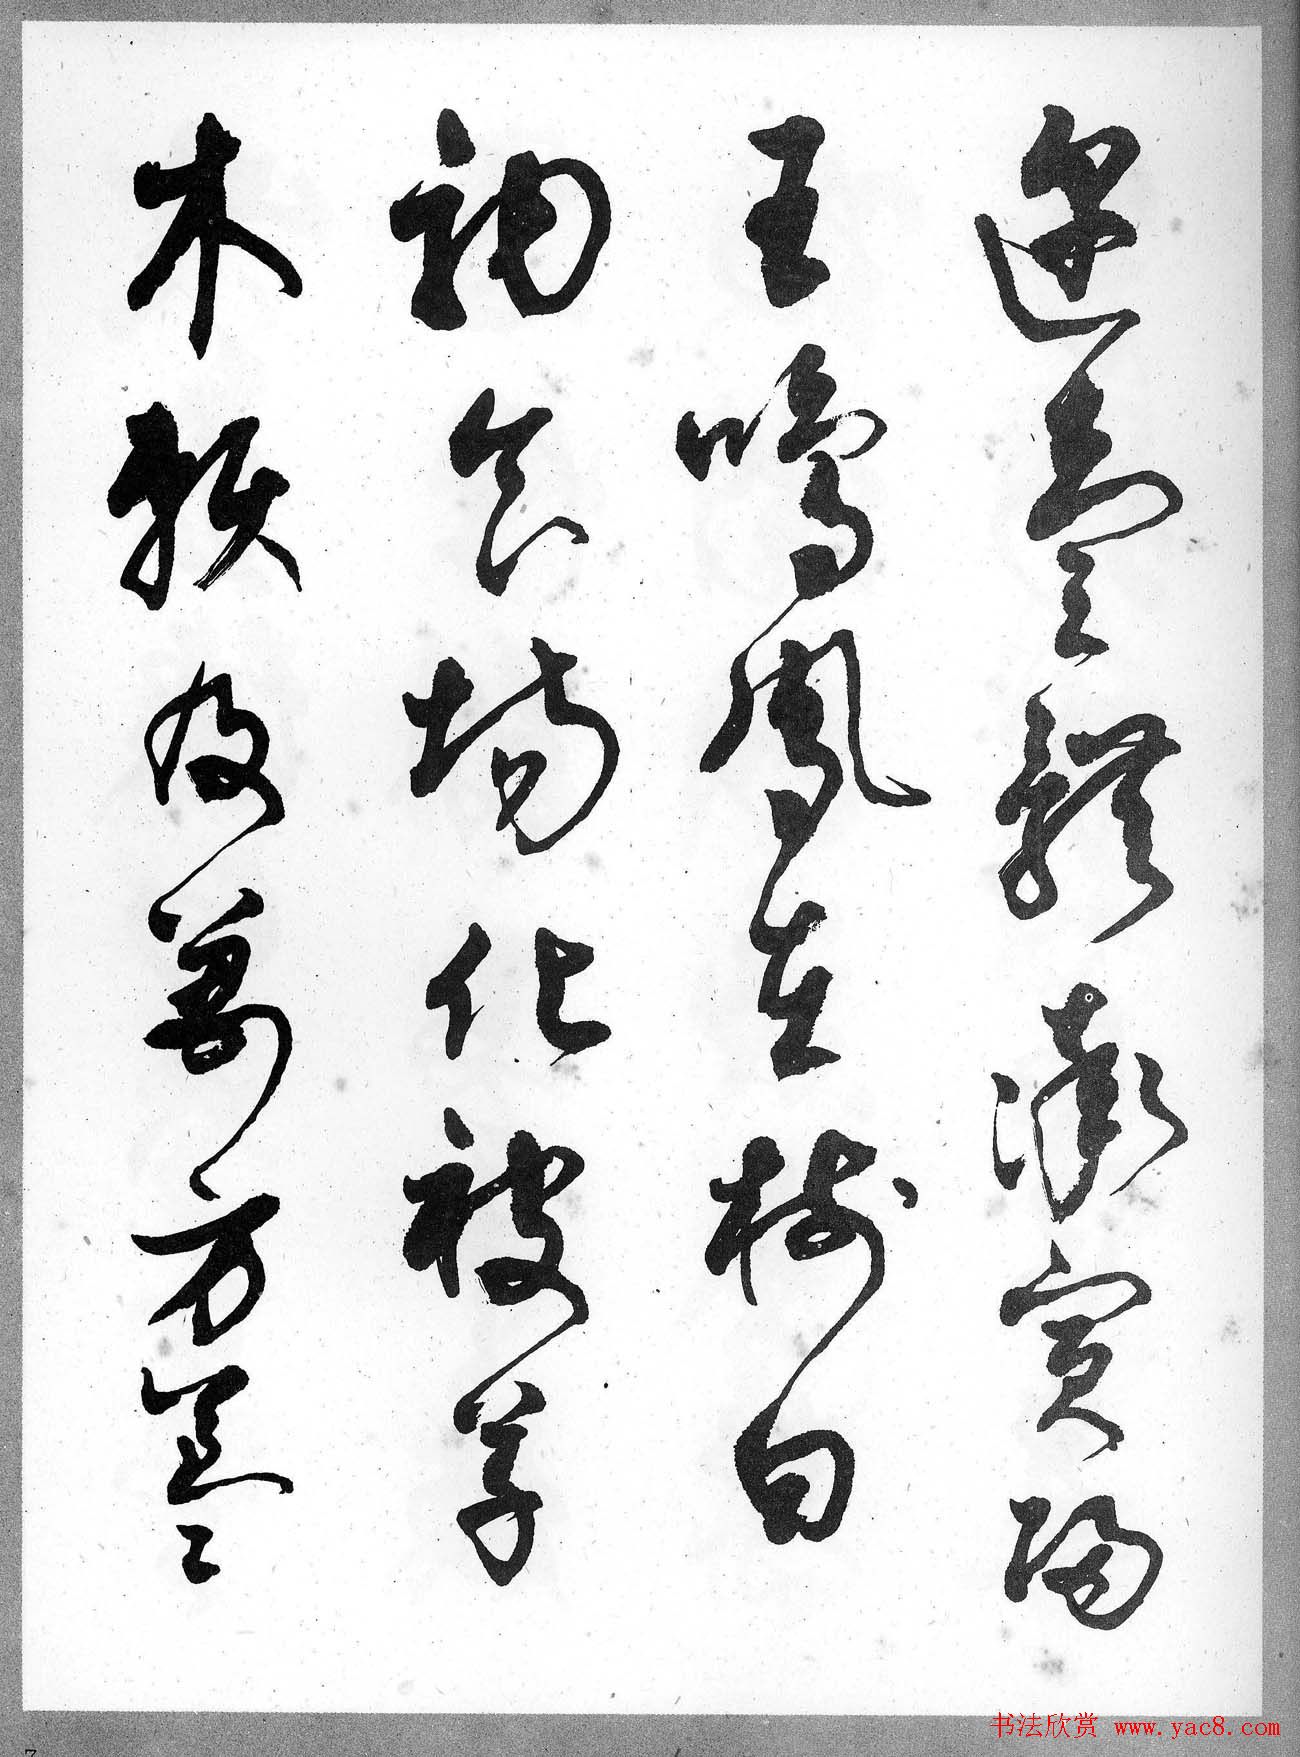 迩壹體率賓歸
王鳴鳳在樹白
駒食場化被草
木賴及萬方蓋
书法欣赏 www.yac8.com